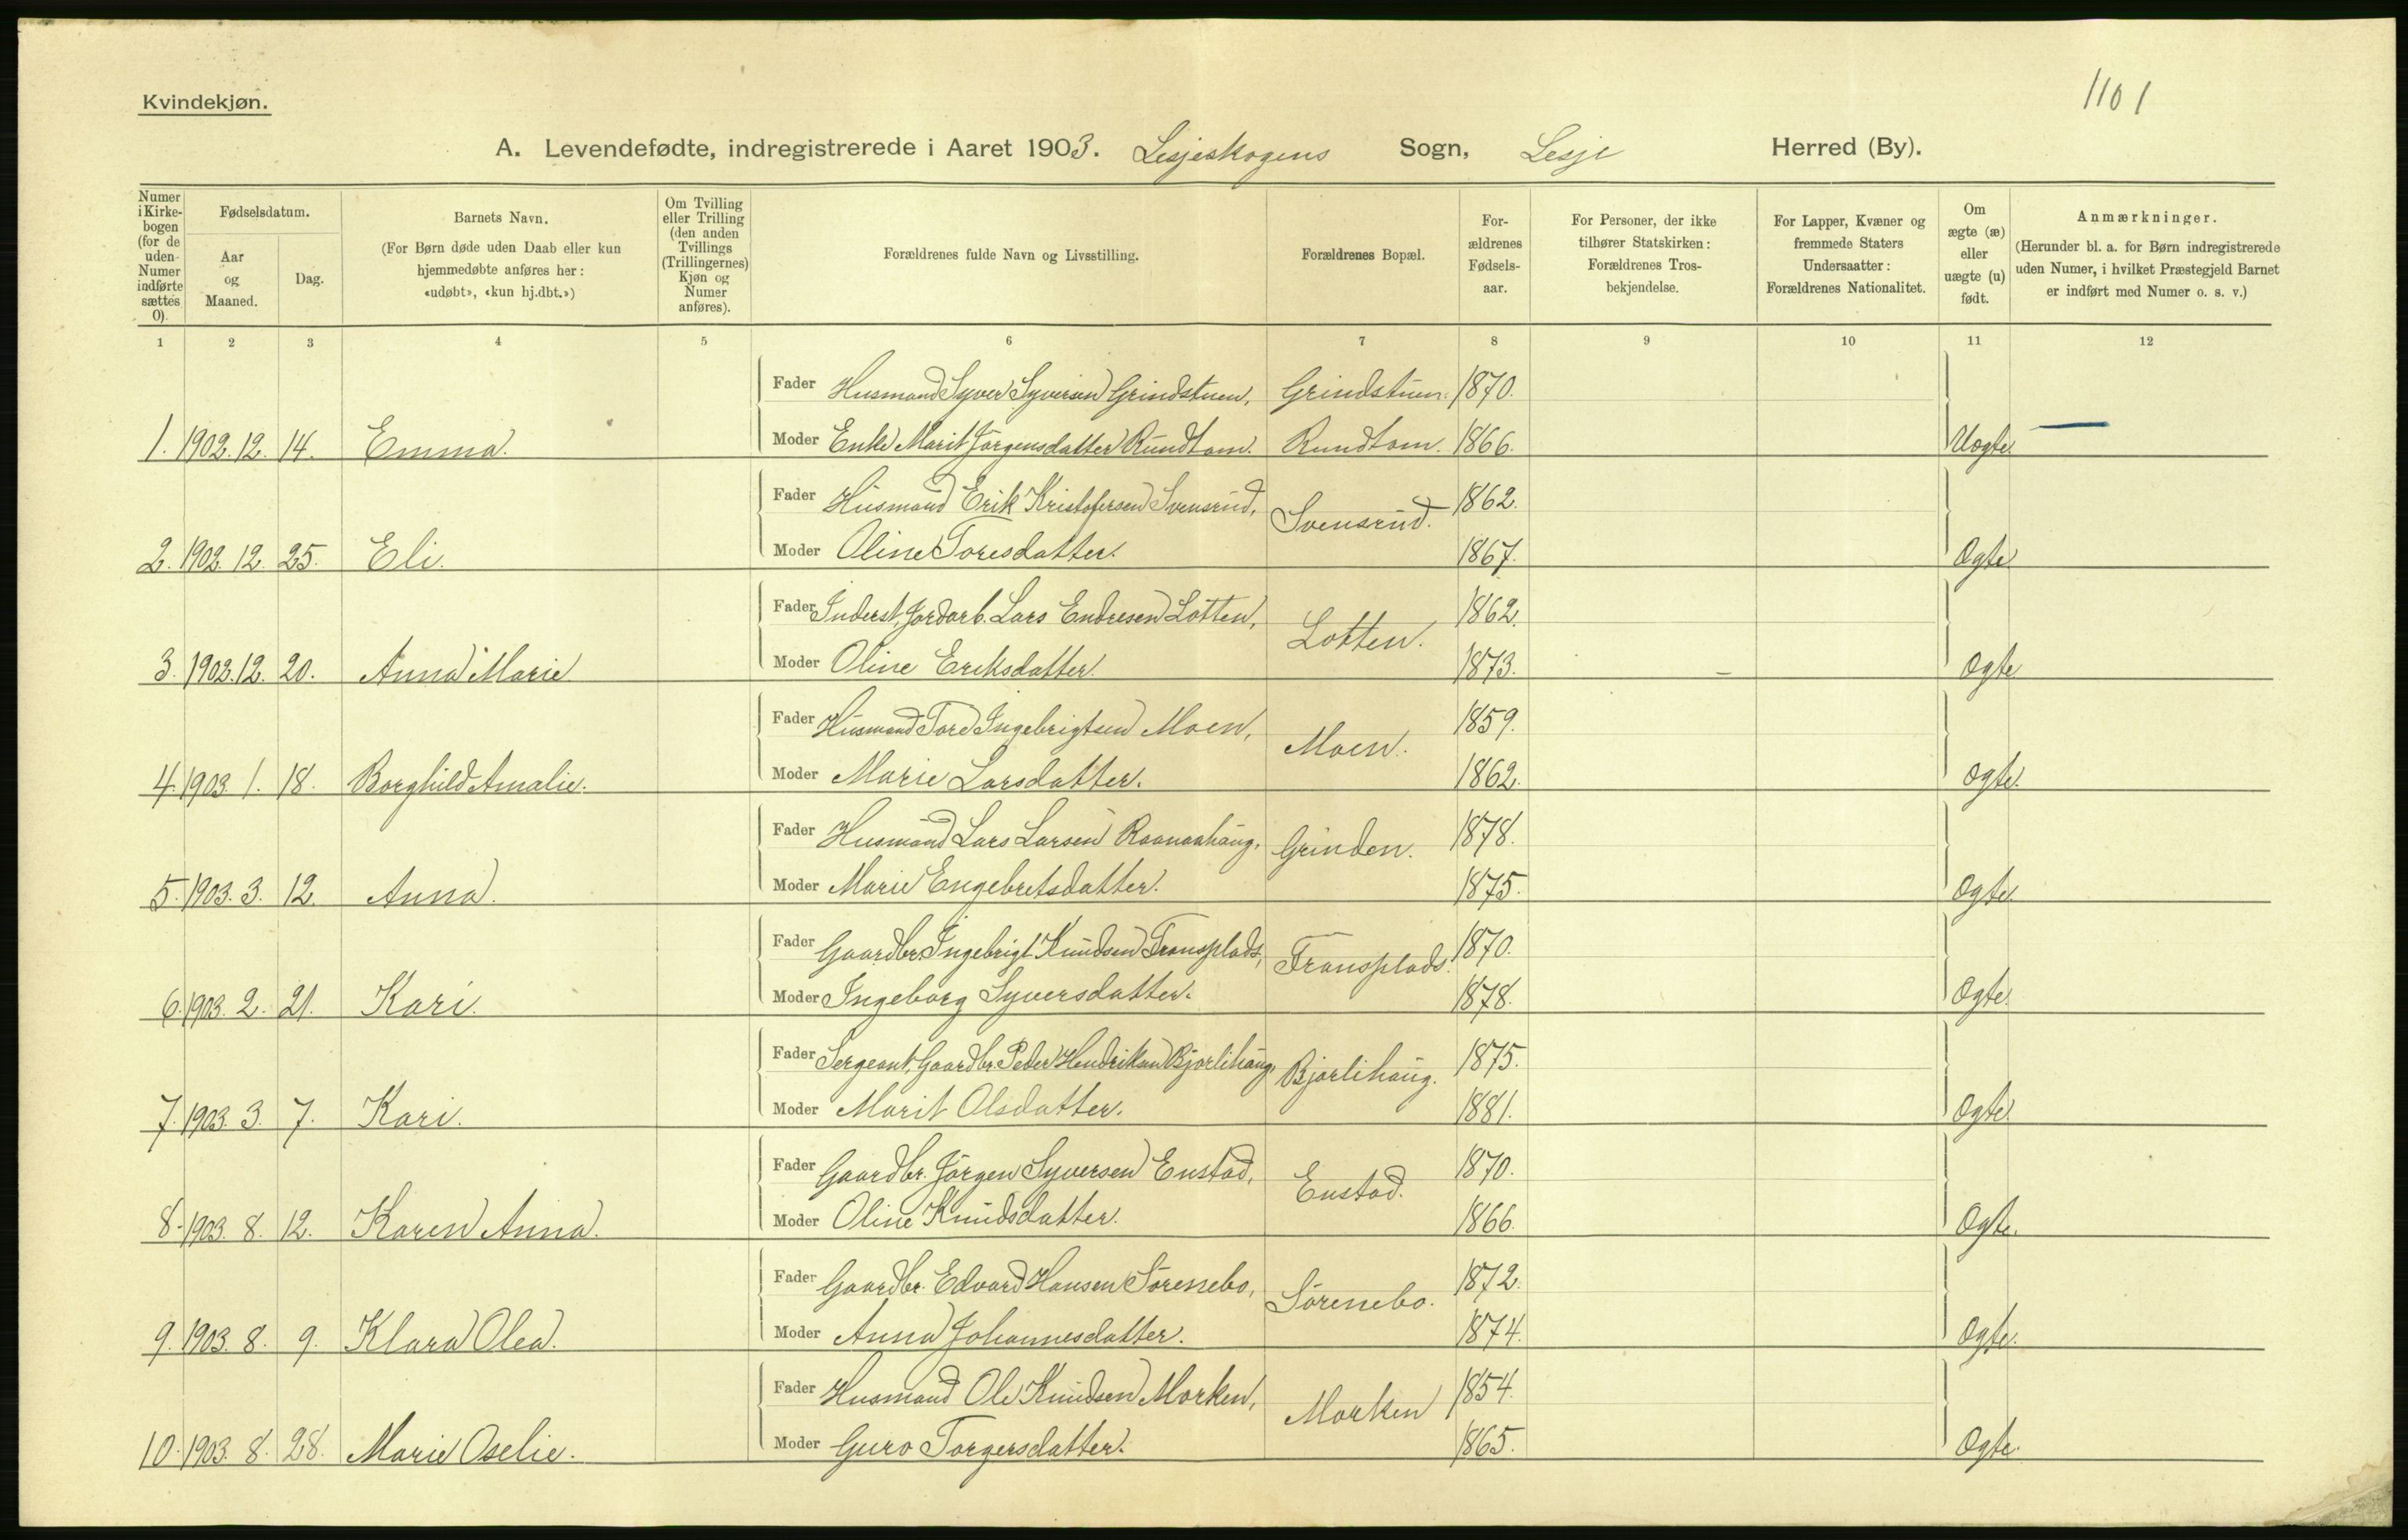 1101
Kvindekjøn.
A. Levendefødte, indregistrerede i Aaret 1903. Lesjeskogens Sogn, Lesje Herred (By).
Numer i Kirkebogen (for de uden Numer indførte sættes 0).
Fødselsdatum.
Aar og Maaned.
Dag.
Barnets Navn.
(For Børn døde uden Daab eller kun hjemmedøbte anføres her: «udøbt», «kun hj.dbt.»)
Om Tvilling eller Trilling (den anden Tvillings (Trillingernes) Kjøn og Numer anføres).
Forældrenes fulde Navn og Livsstilling.
Forældrenes Bopæl.
Forældrenes Fødselsaar.
For Personer, der ikke tilhører Statskirken: Forældrenes Trosbekjendelse.
For Lapper, Kvæner og fremmede Staters Undersaatter: Forældrenes Nationalitet.
Om ægte (æ) eller uægte (u) født.
Anmærkninger.
(Herunder bl. a. for Børn indregistrerede uden Numer, i hvilket Præstegjeld Barnet er indført med Numer o. s. v.)
1 2 3 4 5 6 7 8 9 10 11 12
Fader Husmand Syver Syversen Grindstuen, Grindstuen. 1870.
1. 1902. 12. 14. Emma. Moder Enke Marit Jörgensdatter Rundtom. Rundtom. 1866. Uægte. —
Fader Husmand Erik Kristofersen Svensrud, Svensrud. 1862.
2. 1902. 12. 25. Eli. Moder Oline Toresdatter. 1867. Ægte
Fader Inderst, Jordarb. Lars Endresen Lotten, Lotten. 1862.
3. 1902. 12. 20. Anna Marie Moder Oline Eriksdatter. 1873. Ægte
Fader Husmand Tore Ingebrigtsen Moen, Moen. 1859.
4. 1903. 1. 18. Borghild Amalie. Moder Marie Larsdatter. 1862. Ægte.
Fader Husmand Lars Larsen Raanaahaug, Grinden. 1878.
5. 1903. 3. 12. Anna. Moder Marie Engebretsdatter. 1875. Ægte.
Fader Gaardbr. Ingebrigt Knudsen Transplads, Transplads. 1870.
6. 1903. 2. 21. Kari. Moder Ingeborg Syversdatter. 1878. Ægte.
Fader Sergeant, Gaardbr. Peder Hendriksen Bjorlihaug, Bjorlihaug. 1875.
7. 1903. 3. 7. Kari. Moder Marit Olsdatter. 1881. Ægte.
Fader Gaardbr. Jörgen Syversen Enstad, Enstad. 1870.
8. 1903. 8. 12. Karen Anna. Moder Oline Knudsdatter. 1866. Ægte.
Fader Gaardbr. Edvard Hansen Sörenebo, Sörenebo. 1872.
9. 1903. 8. 9. Klara Olea. Moder Anna Johannesdatter. 1874. Ægte.
Fader Husmand Ole Knudsen Morken, Morken 1854.
10. 1903. 8. 28. Marie Oselie. Moder Guro Torgersdatter. 1865. Ægte.